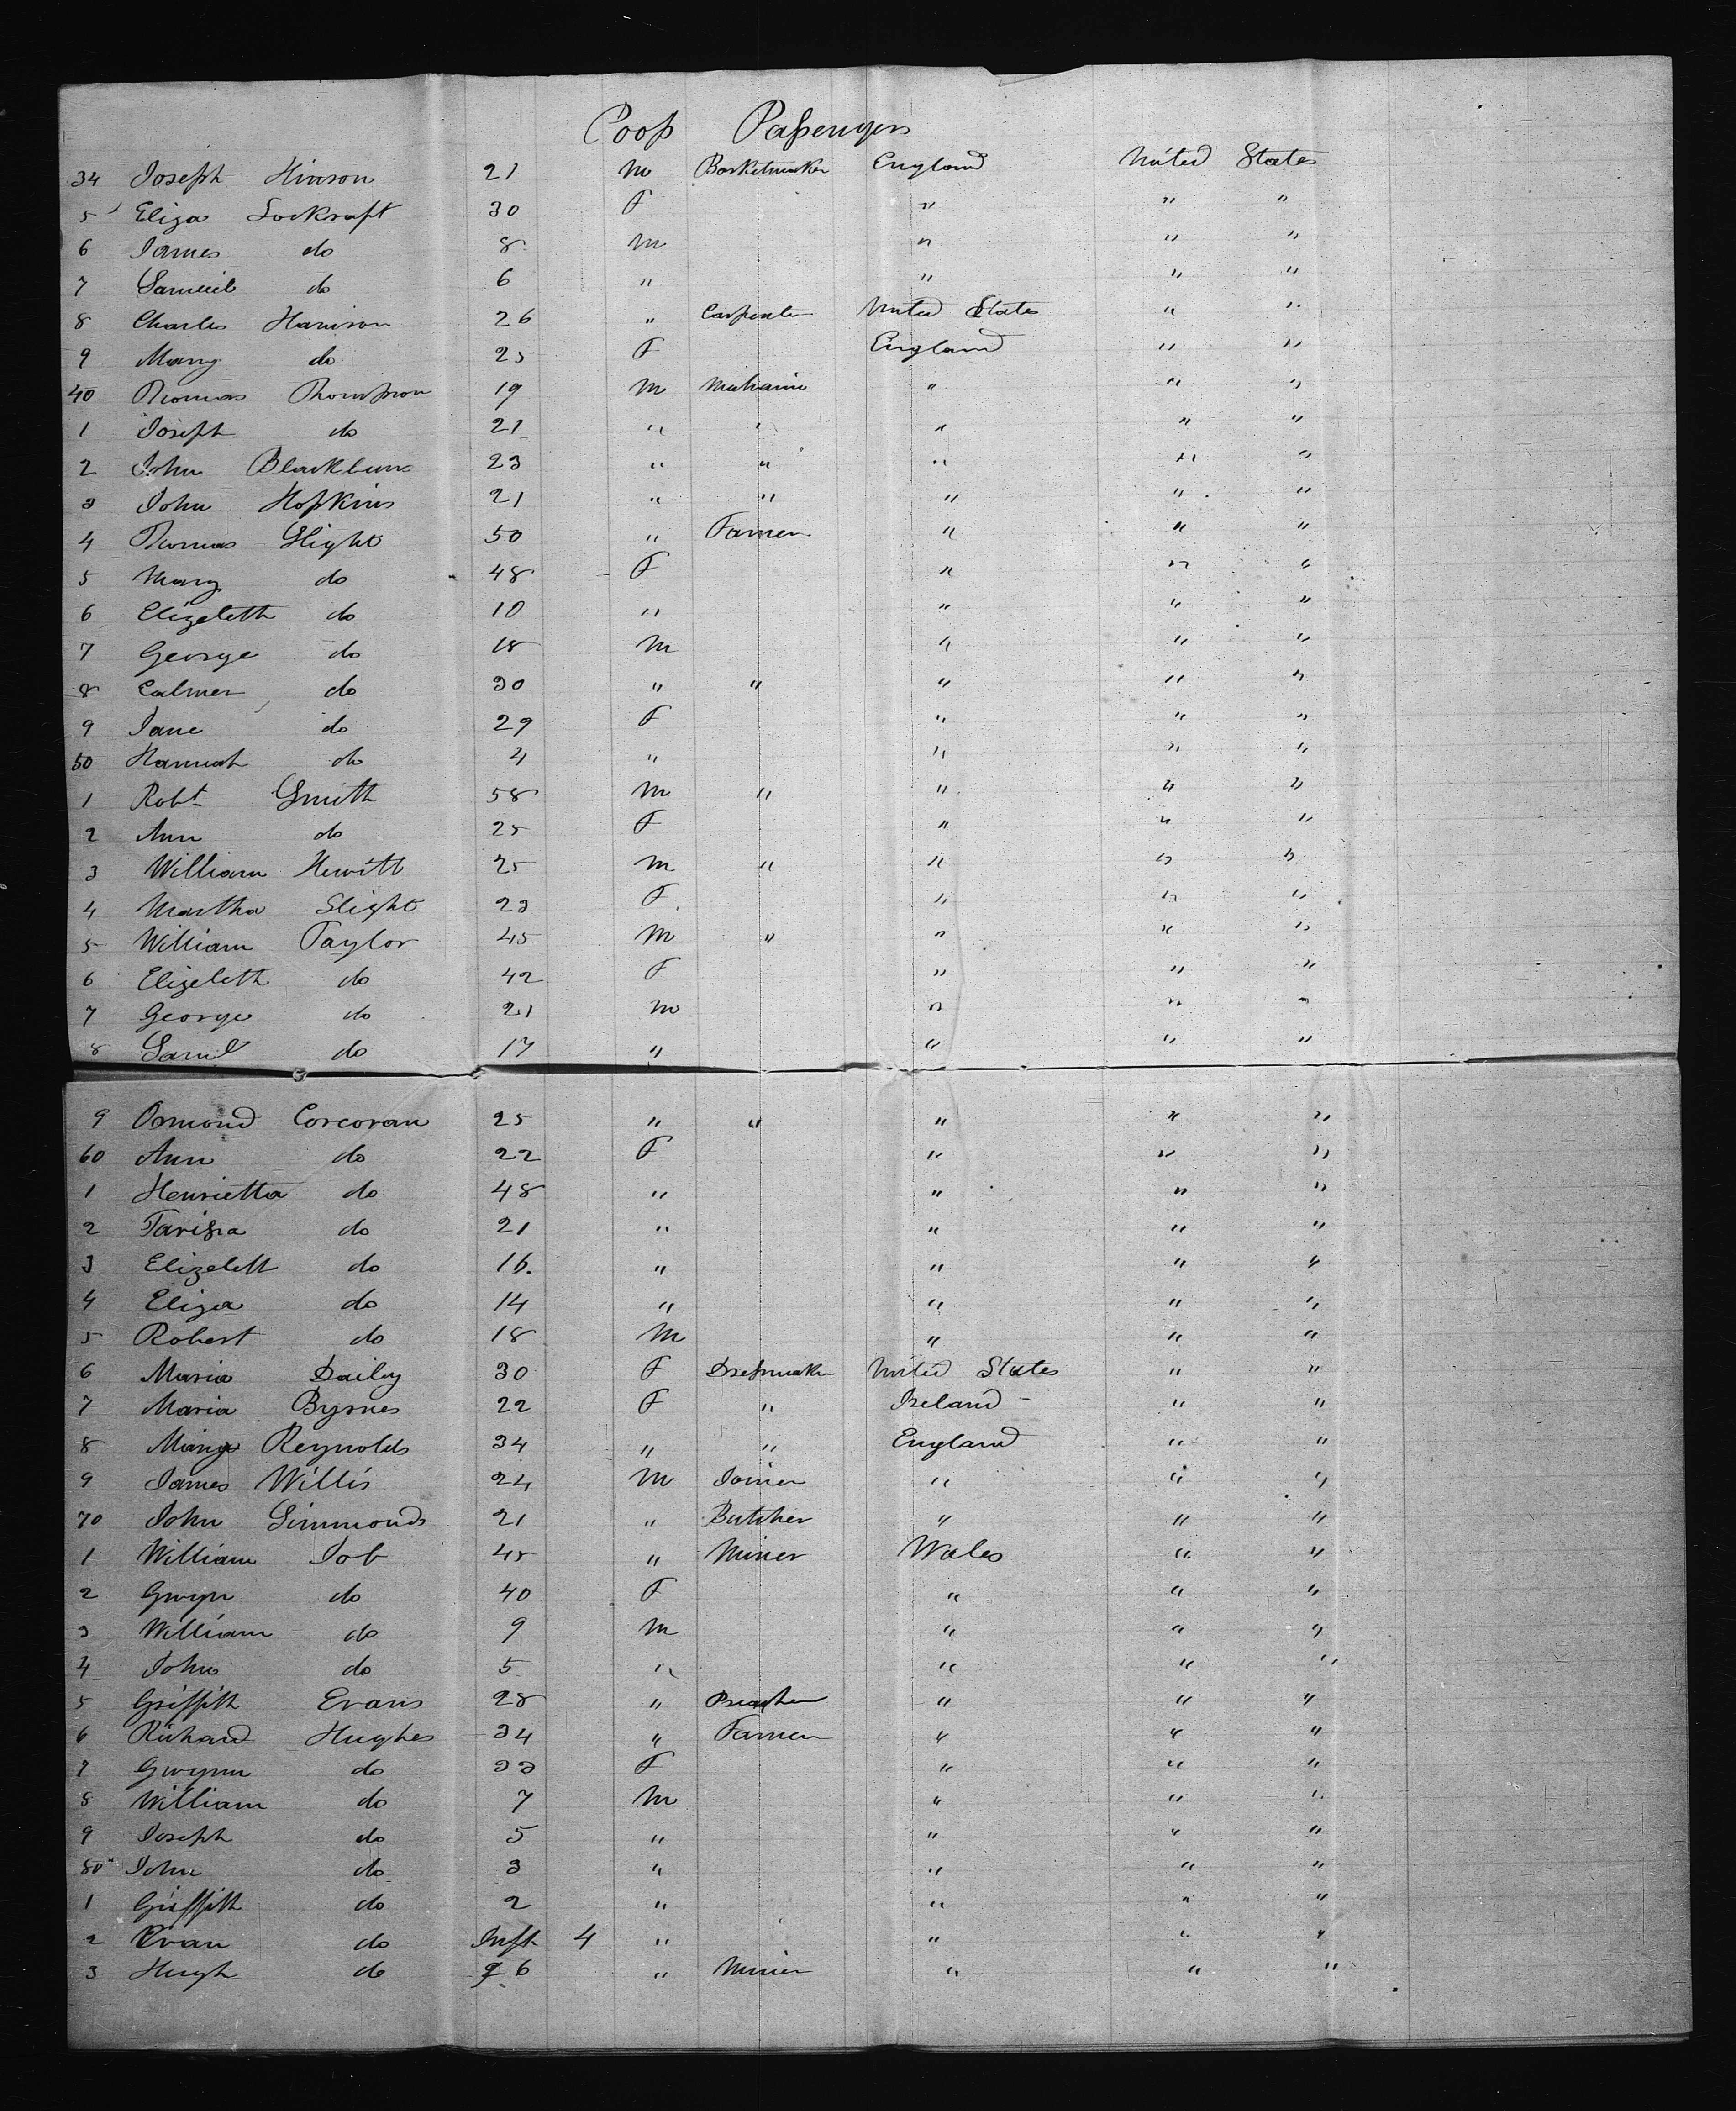 Poop Passengers
34 Joseph Hinson 21 M Basketmaker England United States
5 Eliza Lockraft 30 F " " "
6 James do 8 M " " "
7 Samuel do 6 " " " "
8 Charles Harrison 26 " Carpenter United States " "
9 Mary do 25 F England " "
40 Thomas Thompson 19 M Mechanic " " "
1 Joseph do 21 " " " " "
2 John Blackburne 23 " " " " "
3 John Hopkins 21 " " " " "
4 Thomas Slight 50 " Farmer " " "
5 Mary do 48 F " " "
6 Elizebeth do 10 " " " "
7 George do 18 M " " "
8 do 30 " " " " "
9 Jane do 29 F " " "
50 Hannah do 4 " " " "
1 Robt Smith 58 M " " " "
2 Ann do 25 F " " "
3 William Hewitt 25 M " " " "
4 Martha Slight 23 F " " "
5 William Taylor 45 M " " " "
6 Elizebeth do 42 F " " "
7 George do 21 M " " "
8 Saml do 17 " " " "
9 Osmond Corcoran 25 " " " " "
60 Ann do 22 F " " "
1 Henrietta do 48 " " " "
2 do 21 " " " "
3 Elizebeth do 16. " " " "
4 Eliza do 14 " " " "
5 Robert do 18 M " " "
6 Maria Dailey 30 F Dressmaker United States " "
7 Maria Byrnes 22 F " Ireland " "
8 Mary Reynolds 34 " " England " "
9 James Willis 24 M Joiner " " "
70 John Simmonds 21 " Butcher " " "
1 William Job 45 " Miner Wales " "
2 Gwyn do 40 F " " "
3 William do 9 M " " "
4 John do 5 " " " "
5 Griffith Evans 28 " Preacher " " "
6 Richard Hughes 34 " Farmer " " "
7 Gwynn do 33 F " " "
8 William do 7 M " " "
9 Joseph do 5 " " " "
80 John do 3 " " " "
1 Griffith do 2 " " " "
2 Evan do Inft 4 " " " "
3 Hugh do 26 " Miner " " "